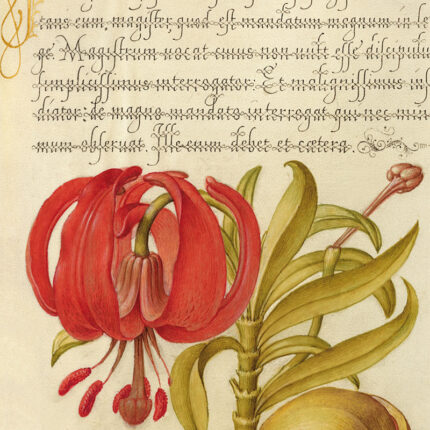 eam eum, magister: quod est mandatum magnum in le
ge. Magistrum vocat cuius non vult esse discipulus
simplicissimus interrogator: Et malignissimus insi
diator: de magno mandato interrogat qui nec mini
mum observat. Ille enim debet et cætera.